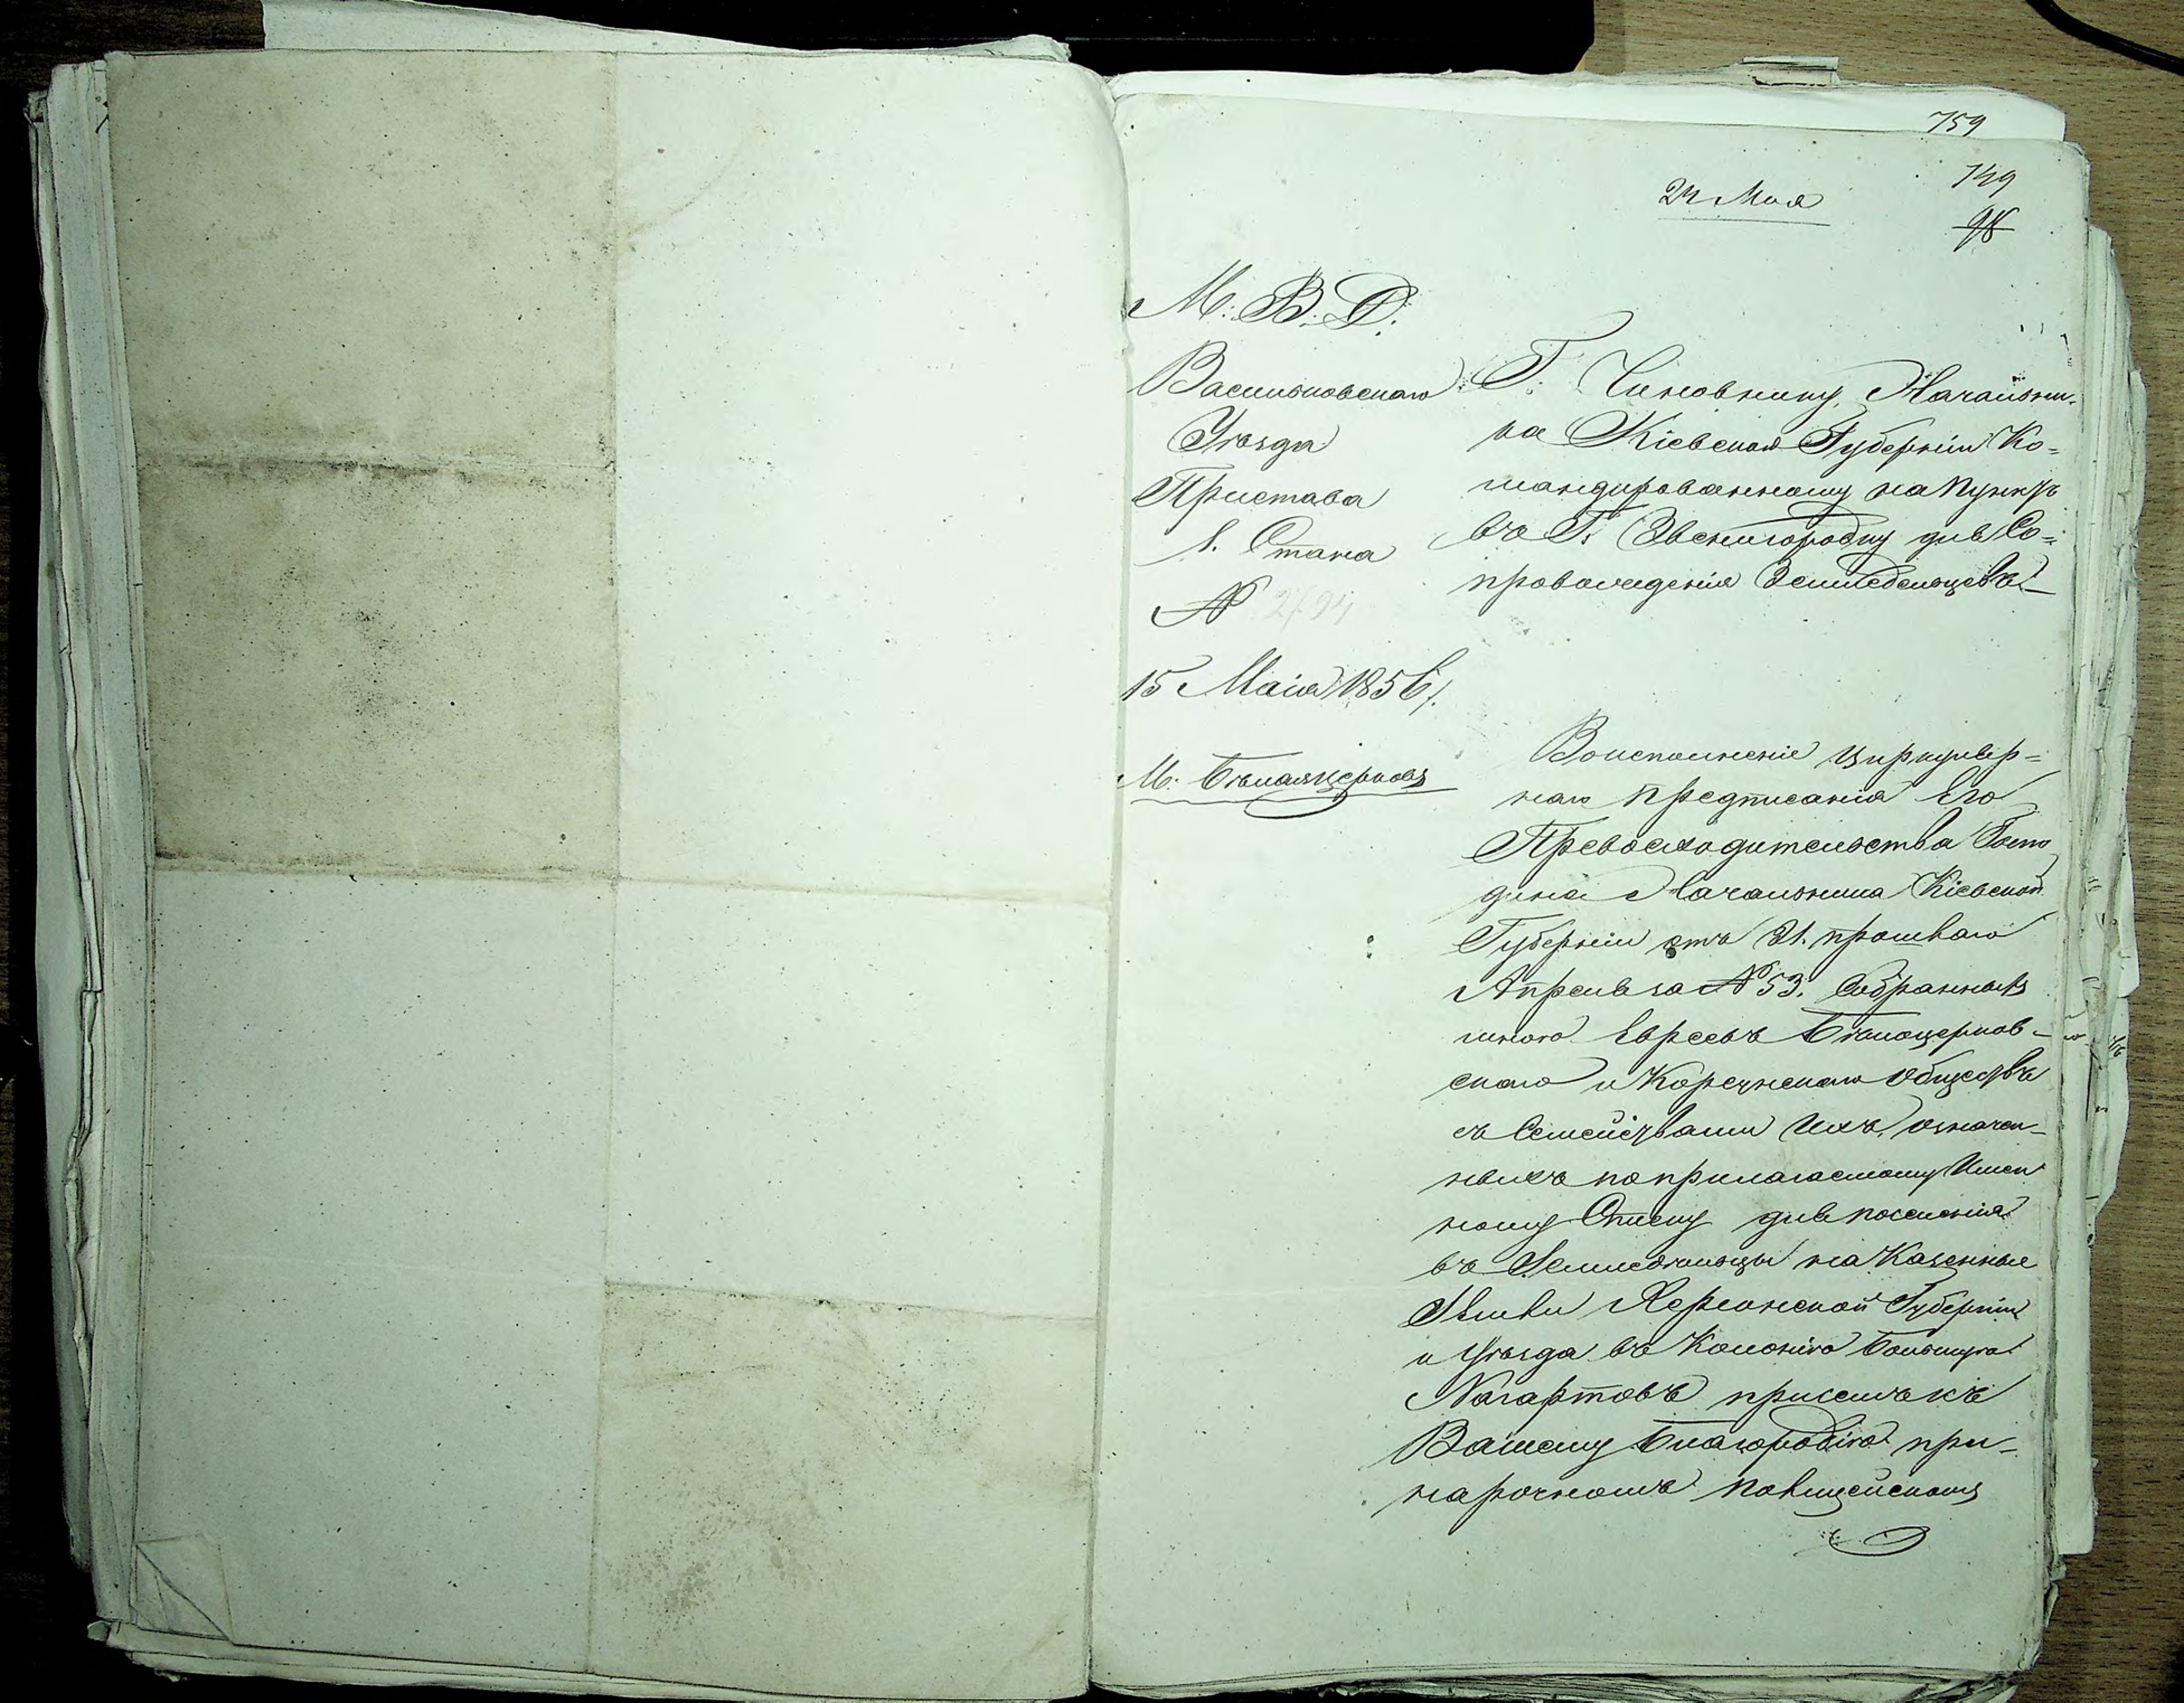 759
749
98
24 Мая
М. В. Д.
Васильковскаго
Уѣзда
Пристава
1. Стана
№ 2794
15 Маія 1856 г.
М. Бѣлаяцерковь
Г. Чиновнику, Начальни-
ка Кіевской Губерніи Ко=
мандированному на пунктъ
въ Г. Звенигородку для Со=
провожденія Земледельцевъ.
Воисполненіе циркуляр=
наго предписанія Его
Превосходительства Госпо
дина Начальника Кіевской
Губерніи отъ 21. прошлаго
Апреля за № 53. Собранныхъ
мною Евреевъ Бѣлоцерков-
скаго и Корсунскаго обществъ
съ Семействами Ихъ, означен-
ныхъ по прилагаемому Имен
ному Списку для поселенія
въ Земледѣльцы на Казенные
Земли Херсонской Губерніи
и Уѣзда въ Колонію Большую
Нагартовъ присемъ къ
Вашему Благородію при-
нарочномъ полицейскомъ